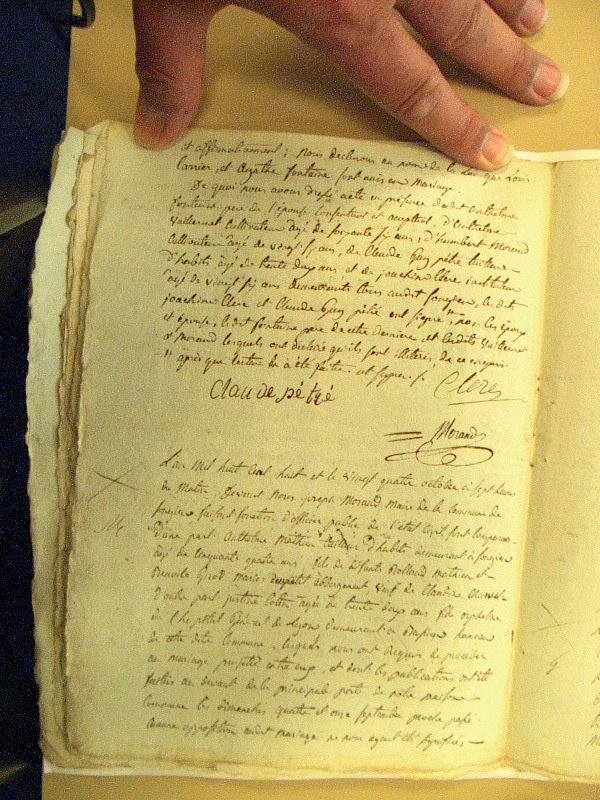 et affirmativement; nous declarons au nom de la Loi que Louis
Carrier, et Agathe fontaine sont unis en mariage.
De quoi nous avons dressé acte en présence de dudit anthelme
fontaine pere de l'épouse Consentant et acceptant, d'anthelme
Cultivateur âgé de soixante six ans, d'humbert Morand
Cultivateur âgé de vingt six ans, de Claude Guy pétré tailleur
d'habits âgé de trente deux ans et de joachim Clere instituteur
âgé de vingt six ans demeurants tous audit songieu, le dit
joachim Clere et Claude Guy pétré ont signé, non les époux
et épouse, le dit fontaine pere de cette derniere, et lesdits
et Morand lesquels ont déclaré qu'ils sont illiterés, de ce requis
après que lecture en à été faite. et signé.
Claude pétré Clere
Morand
L'an Mil huit cent huit et le vingt quatre octobre à sept heures
du Matin. Devant Nous joseph Morand Maire de la Commune de
songieu faisant fonction d'officier public de l'état Civil, sont comparus
D'une part Anthelme Mathieu tailleur d'habits demeurant à songieu
âgé de Cinquante quatre ans, fils de défunts Rolland Mathieu et
Benoite Guod mariés abbergement veuf de Claudine
D'autre part justine Colin âgée de trente deux ans fille orpheline
de l'hopital Général de Lyon demeurant à hameau
de cette dite Commune, lesquels nous ont requis de procéder
au mariage projetté entre eux, et dont les publications ont été
faites au devant de la principale porte de nôtre maison
Commune les dimanches quatre et onze septembre proche passé.
Aucune opposition audit mariage ne nous ayant été signifiée,